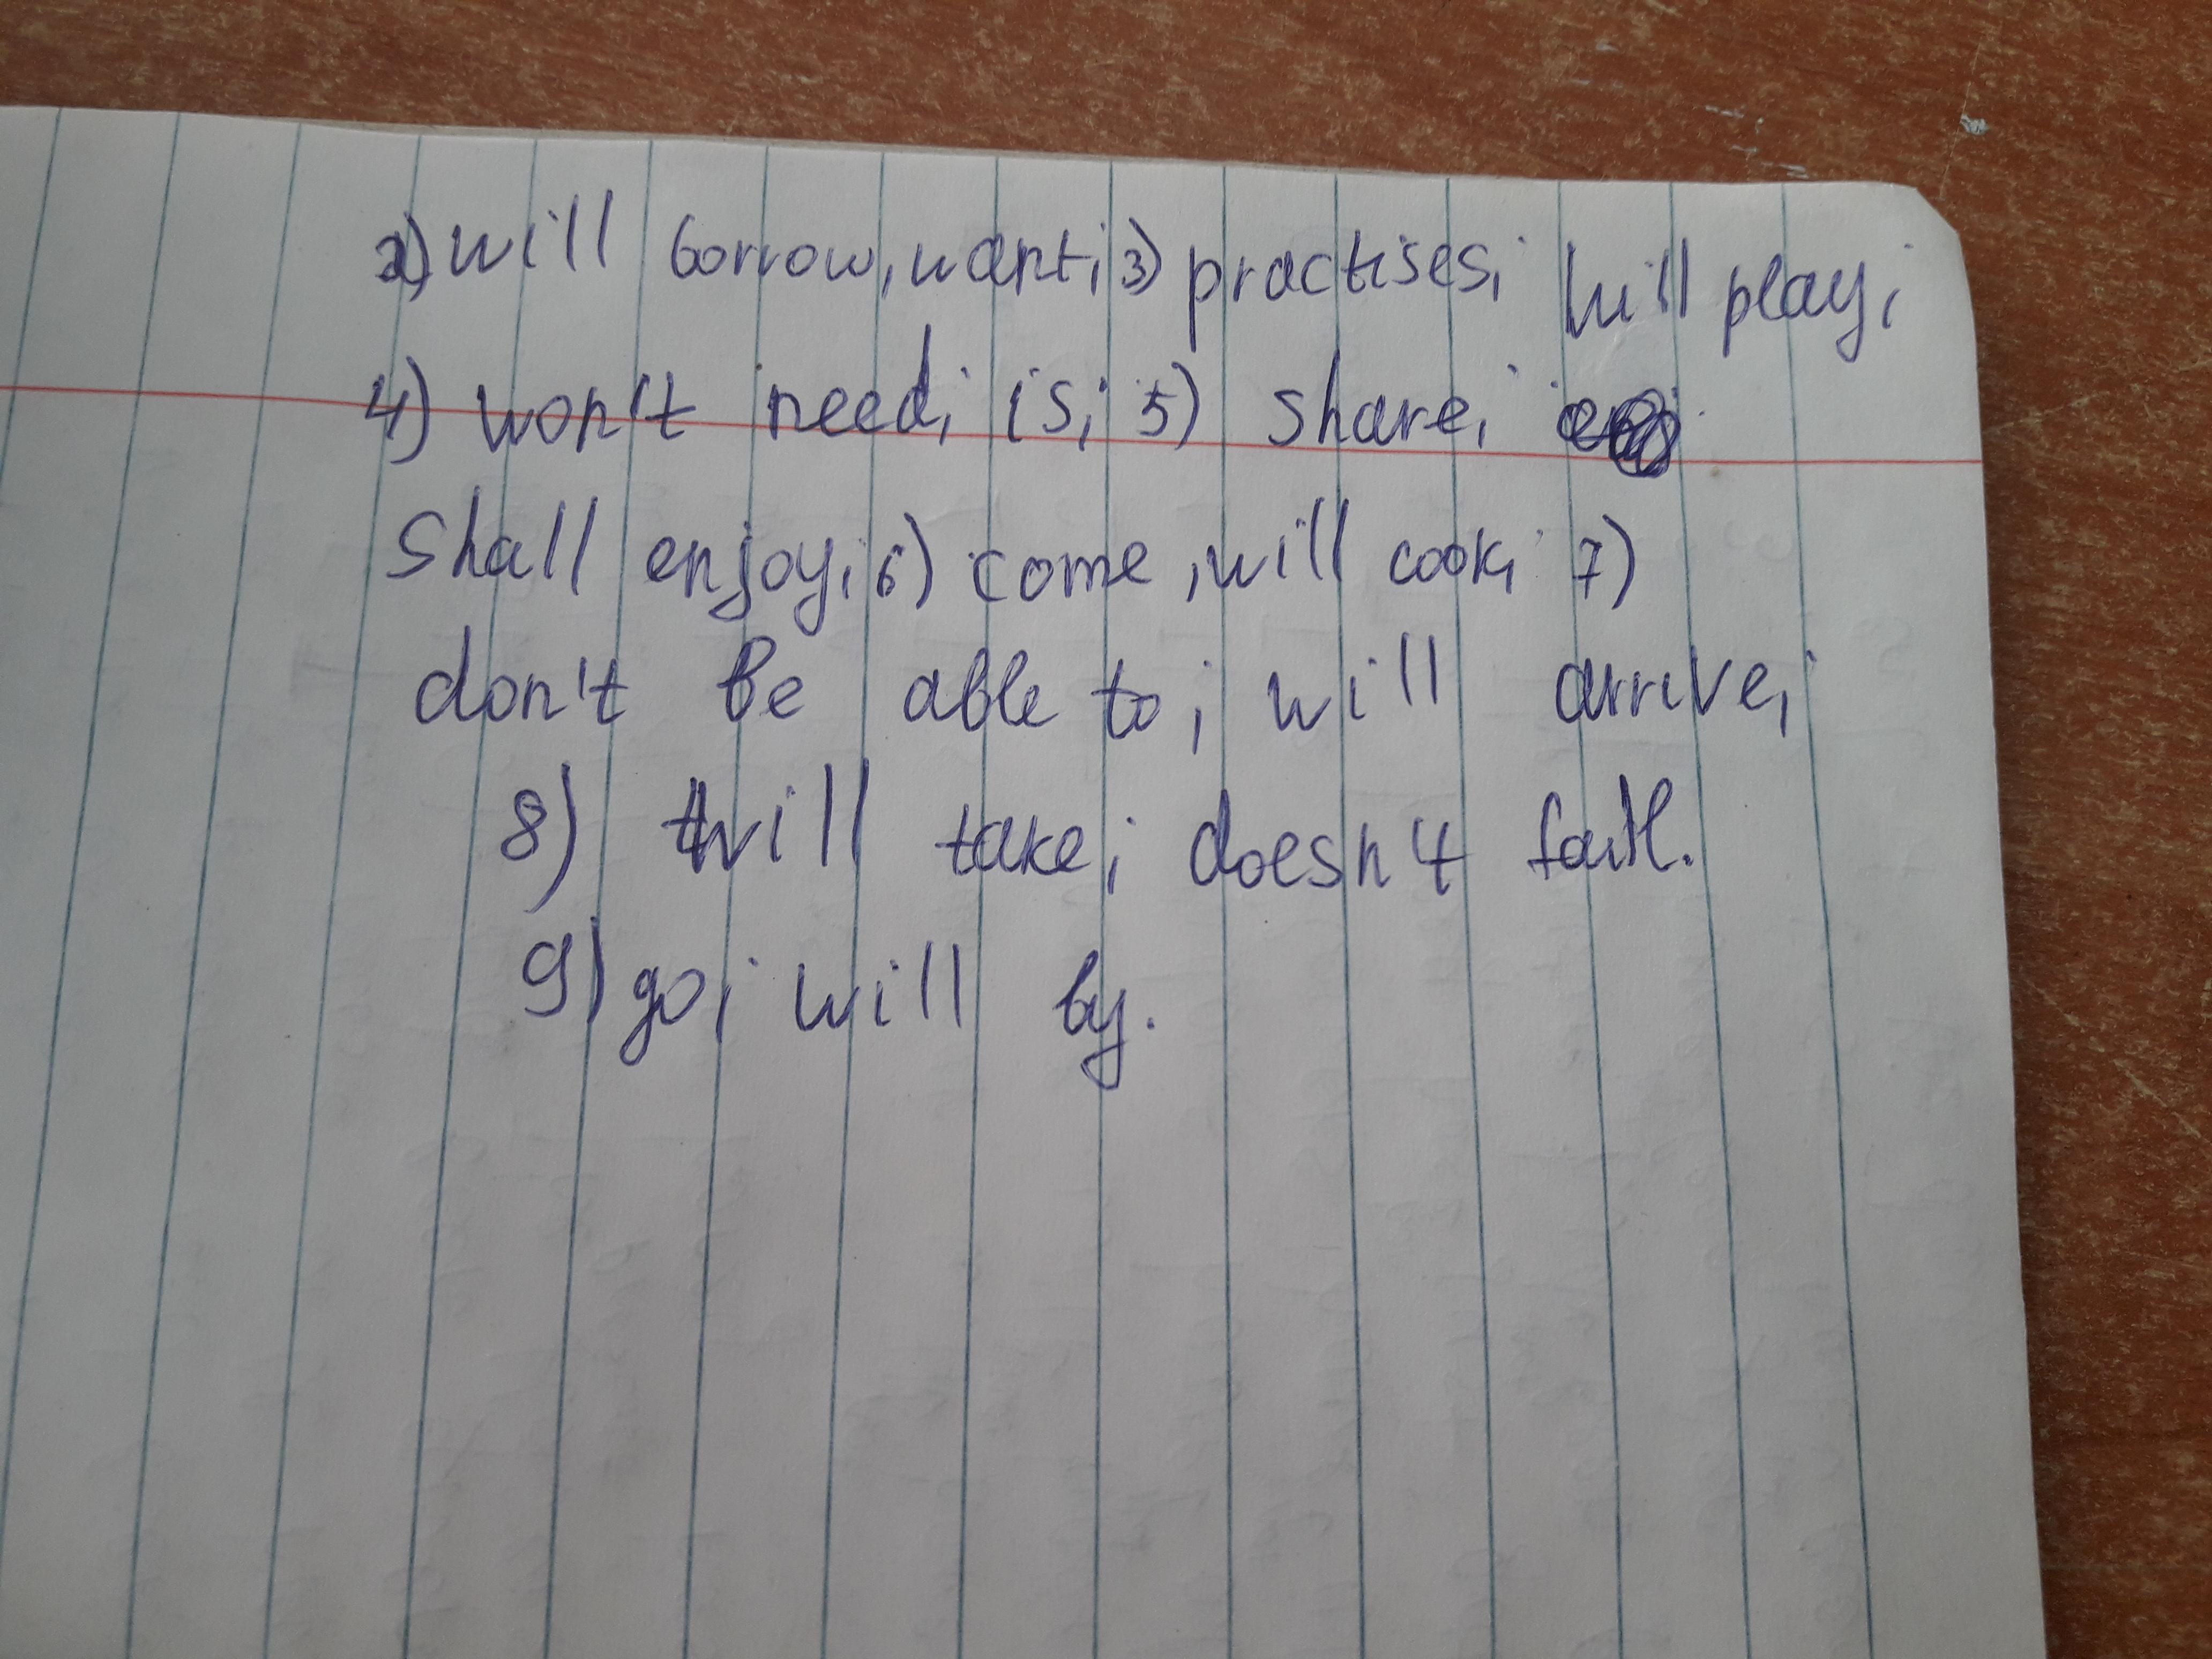 2) will borrow, want; 3) practises; will play;
4) won't need; is; 5) share;
Shall enjoy; 6) come, will cook; 7)
don't be able to; will arrive;
8) will take; doesn't fail.
9) go; will by.